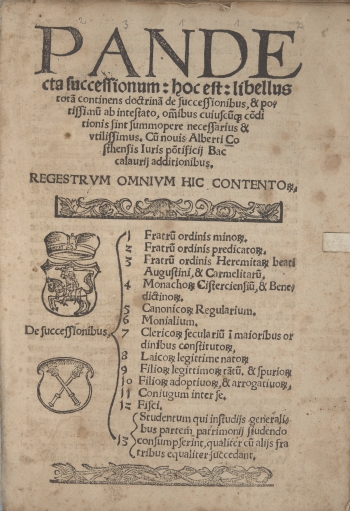 PANDE
cta successionum: hoc est: libellus
totã continens doctrinã de successionibus, & po-
tissimũ ab intestato, om̃ibus cuiuscũqꝫ cõdi
tionis sint summopere necessarius &
vtilissimus. Cũ nouis Alberti Co
sthensis Iuris põtificij Bac
calaurij additionibus.
REGESTRVM OMNIVM HIC CONTENTOꝜ,
De successionibus,
1 Fratrũ ordinis minoꝝ.
2 Fratrũ ordinis predicatoꝝ.
3 Fratrũ ordinis Heremitaꝝ beati
Augustini, & Carmelitarũ.
4 Monachoꝝ Cisterciensiũ, & Bene
dictinoꝝ.
5 Canonicoꝝ Regularium.
6 Monialium.
7 Clericoꝝ seculariũ ĩ maioribus or
dinibus constitutoꝝ.
8 Laicoꝝ legittime natoꝝ
9 Filioꝝ legittimoꝝ tãtũ, & spurioꝝ
10 Filioꝝ adoptiuoꝝ, & arrogatiuoꝝ,
11 Coniugum inter se.
12 Fisci.
13 Studentum qui in studijs generali
bus partem patrimonij studendo
consumpserint, qualiter cũ alijs fra
tribus equaliter succedant.